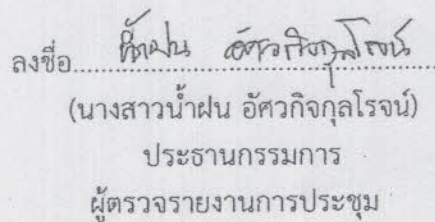 ลงชื่อ น้ำฝน อัศวกิจกุลโรจน์
(นางสาวน้ำฝน อัศวกิจกุลโรจน์)
ประธานกรรมการ
ผู้ตรวจรายงานการประชุม